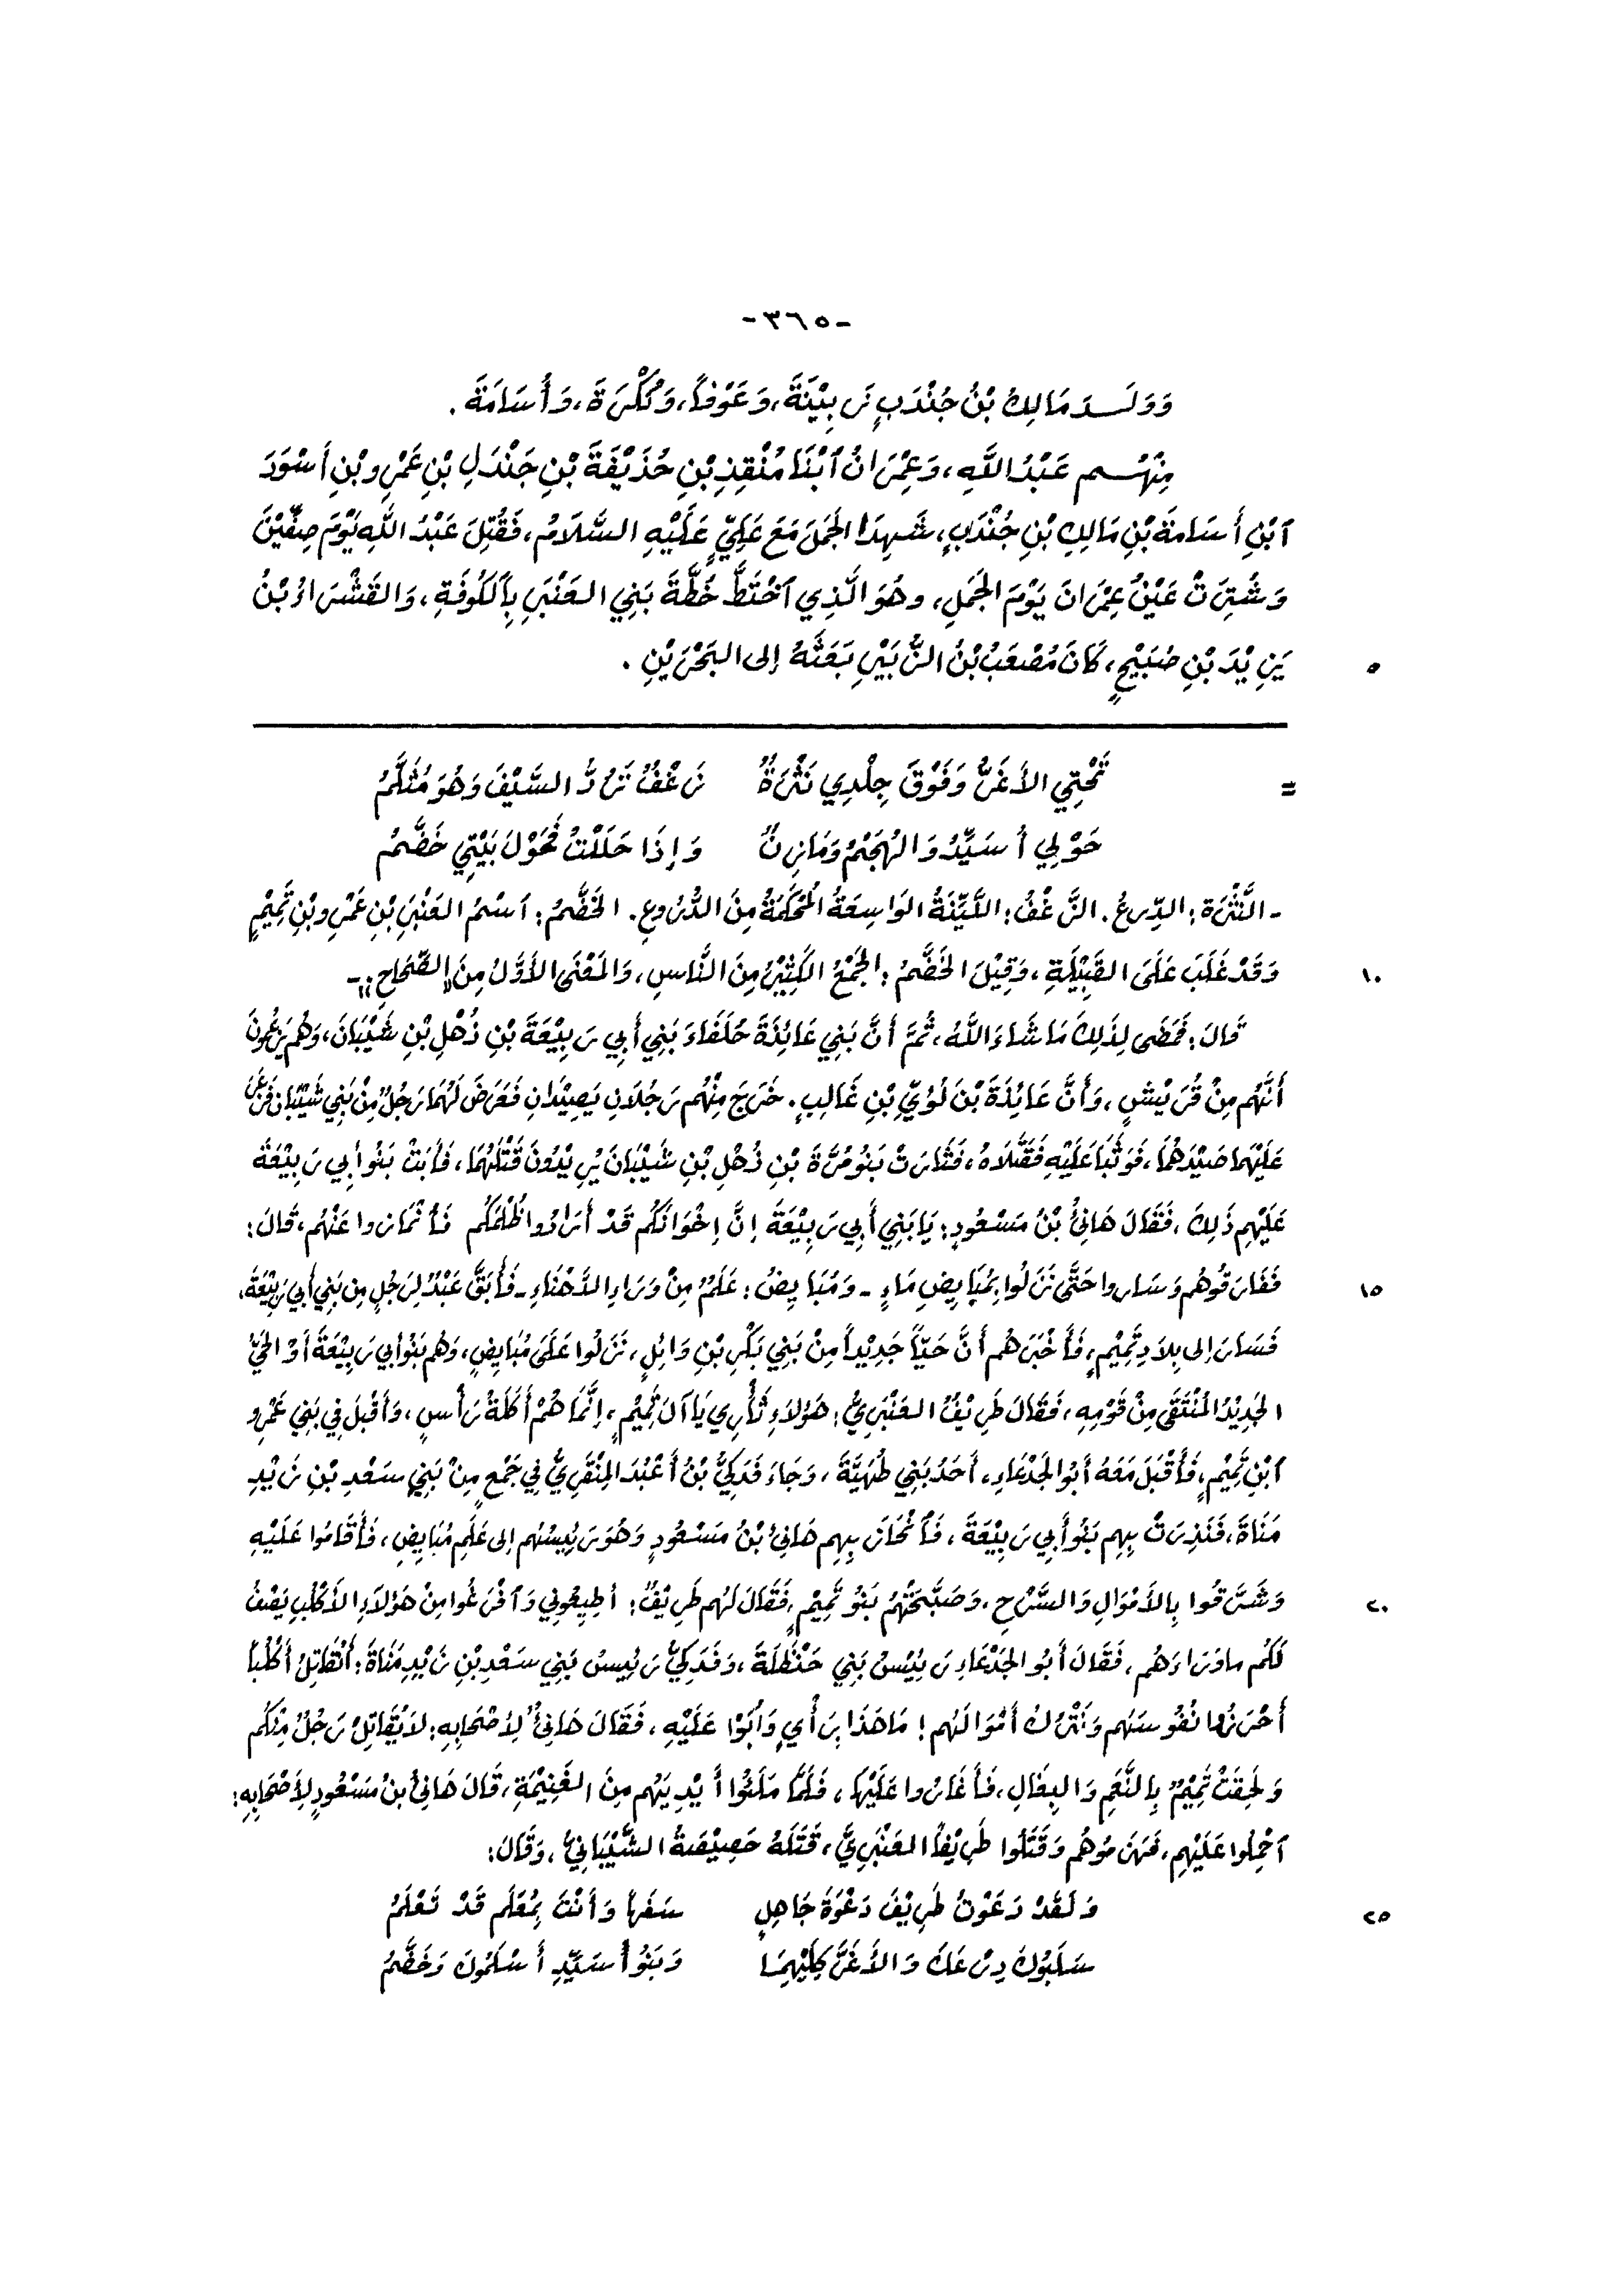 -٣٦٥-
وَوَلَـــدَ مَالِكُ بْنُ جُنْدَبٍ زَبِيْنَةَ، وَعَوْفاً، وَنُكْرَةَ، وَأُسَامَةَ.
مِنْهُـــم عَبْدُ اللَّهِ، وَعِمْرَانُ ٱبْنَا مُنْقِذِ بْنِ حُذَيْفَةَ بْنِ جَنْدَلِ بْنِ عَمْرِو بْنِ أَسْوَدَ
ٱبْنِ أُسَامَةَ بْنِ مَالِكِ بْنِ جُنْدَبٍ، شَهِدَا الجَمَلَ مَعَ عَلِيٍّ عَلَيْهِ السَّلَامُ، فَقُتِلَ عَبْدُ اللَّهِ يَوْمَ صِفِّيْنَ
وَشُتِرَتْ عَيْنُ عِمْرَانَ يَوْمَ الجَمَلِ، وهُوَ الَّذِي ٱخْتَطَّ خُطَّةَ بَنِي العَنْبَرِ بِالكُوفَةِ، وَالقَشْرَاءُ بْنُ
٥ يَزِيْدَ بْنِ صُبَيْحٍ، كَانَ مُصْعَبُ بْنُ الزُّبَيْرِ بَعَثَهُ إلى البَحْرَيْنِ.
= تَحْتِي الأَغَرُّ وَفَوْقَ جِلْدِي نَثْرَةٌ زَغْفٌ تَرُدُّ السَّيْفَ وَهُوَ مُثَلَّمُ
حَوْلِي أُسَيِّدُ وَالهُجَيْمُ وَمَازِنٌ وَإِذَا حَلَلْتُ فَحَوْلَ بَيْتِي خَضَّمُ
- النَّثْرَة: الدِّرعُ. الزَّغْفُ: اللَّيِّنَةُ الوَاسِعَةُ المُحْكَمَةُ مِنَ الدُّرُوعِ. الخَضَّمُ: ٱسْمُ العَنْبَرِ بْنِ عَمْرِو بْنِ تَمِيْمٍ
١٠ وَقَدْ غَلَبَ عَلَى القَبِيْلَةِ، وَقِيْلَ الخَضَّمُ: الجَمْعُ الكَثِيْرُ مِنَ النَّاسِ، وَالمَعْنَى الأَوَّلُ مِنَ «الصِّحَاحِ» -
قَالَ: فَمَضَى لِذَلِكَ مَا شَاءَ اللَّهُ، ثُمَّ أَنَّ بَنِي عَائِذَةَ حُلَفَاءَ بَنِي أَبِي رَبِيْعَةَ بْنِ ذُهْلِ بْنِ شَيْبَانَ، وَهُم يَزْعُمُونَ
أَنَّهُم مِنْ قُرَيْشٍ، وَأَنَّ عَائِذَةَ بْنَ لُؤَيِّ بْنِ غَالِبٍ. خَرَجَ مِنْهُم رَجُلَانِ يَصِيْدَانِ فَعَرَضَ لَهُمَا رَجُلٌ مِنْ بَنِي شَيْبَانَ فَذَعَرَ
عَلَيْهِمَا صَيْدَهُمَا، فَوَثَبَا عَلَيْهِ فَقَتَلَاهُ، فَثَارَتْ بَنُو مُرَّةَ بْنِ ذُهْلِ بْنِ شَيْبَانَ يُرِيْدُونَ قَتْلَهُمَا، فَأَبَتْ بَنُو أَبِي رَبِيْعَةَ
عَلَيْهِم ذَلِكَ، فَقَالَ هَانِئُ بْنُ مَسْعُودٍ: يَا بَنِي أَبِي رَبِيْعَةَ إِنَّ إِخْوَانَكُم قَدْ أَرَادُوا ظُلْمَكُم فَٱنْمَازوا عَنْهُم، قَالَ:
١٥ فَفَارَقُوهُم وَسَاروا حَتَّى نَزَلُوا بِمُبَايِضِ مَاءٍ - وَمُبَايِضُ: عَلَمٌ مِنْ وَرَاءِ الدَّهْنَاءِ - فَأَبَقَ عَبْدٌ لِرَجُلٍ مِن بَنِي أَبِي رَبِيْعَةَ،
فَسَارَ إلى بِلَادِ تَمِيْمٍ، فَأَخْبَرَهُم أَنَّ حَيّاً جَدِيْداً مِنْ بَنِي بَكْرِ بْنِ وَائِلٍ، نَزَلُوا عَلَى مُبَايِضٍ، وَهُم بَنُو أَبِي رَبِيْعَةَ أَوْ الحَيُّ
الجَدِيْدُ المُنْتَقَى مِنْ قَوْمِهِ، فَقَالَ طَرِيْفٌ العَنْبَرِيُّ: هَؤُلَاءِ ثَأْرِي يَا آلَ تَمِيْمٍ، إِنَّمَا هُمْ أَكَلَةُ رَأْسٍ، وَأَقْبَلَ فِي بَنِي عَمْرِو
ٱبْنِ تَمِيْمٍ، فَأَقْبَلَ مَعَهُ أَبُو الجَدْعَاءِ، أَحَدُ بَنِي طُهَيَّةَ، وَجَاءَ فَدَكِيُّ بْنُ أَعْبُدَ المِنْقَرِيُّ فِي جَمْعٍ مِنْ بَنِي سَعْدِ بْنِ زَيْدِ
مَنَاةَ، فَنَذِرَتْ بِهِم بَنُو أَبِي رَبِيْعَةَ، فَٱنْحَازَ بِهِم هَانِئُ بْنُ مَسْعُودٍ وَهُوَ رَئِيسُهُم إلى عَلَمِ مُبَايِضٍ، فَأَقَامُوا عَلَيْهِ
٢٠ وَشَرَّقُوا بِالأَمْوَالِ وَالسَّرْحِ، وَصَبَّحَتْهُمْ بَنُو تَمِيْمٍ، فَقَالَ لَهُم طَرِيْفٌ: أَطِيعُونِي وَٱفْرَغُوا مِنْ هَؤُلَاءِ الأَكْلُبِ يَصْفُ
لَكُم ماوَرَاءَهُم، فَقَالَ أَبُو الجَدْعَاءِ رَئِيْسُ بَنِي حَنْظَلَةَ، وَفَدَكِيُّ رَئِيسُ بَنِي سَعْدِ بْنِ زَيْدِ مَنَاةَ: أَنُقَاتِلُ أَكْلُباً
أَحْرَزُوا نُفُوسَهُم وَنَتْرُكُ أَمْوَالَهُم! مَا هَذَا بِرَأْيٍ وَأَبَوْا عَلَيْهِ، فَقَالَ هَانِئُ لِأَصْحَابِهِ: لَا يُقَاتِلْ رَجُلٌ مِنْكُم
وَلَحِقَتْ تَمِيْمٌ بِالنَّعَمِ وَالبِغَالِ، فَأَغَاروا عَلَيْهَا، فَلَمَّا مَلَئُوا أَيْدِيَهُم مِنَ الغَنِيْمَةِ، قَالَ هَانِئُ بنُ مَسْعُودٍ لِأَصْحَابِهِ:
ٱحْمِلُوا عَلَيْهِم، فَهَزَمُوهُم وَقَتَلُوا طَرِيْفاً العَنْبَرِيَّ، قَتَلَهُ حَصِيْصَةُ الشَّيْبَانِيُّ، وَقَالَ:
٢٥ وَلَقَدْ دَعَوْتُ طَرِيْفَ دَعْوَةَ جَاهِلٍ سَفَهاً وَأَنْتَ بِمُعْلَمٍ قَدْ تَعْلَمُ
سَلَبُوكَ دِرْعَكَ وَالأَغَرَّ كِلَيْهِمَا وَبَنُو أُسَيِّدٍ أَسْلَمُوكَ وَخَضَّمُ